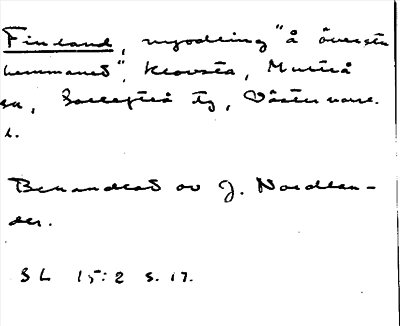 Finland, nyodling "å översta
hemmanet", Krovsta, Multrå
sn, Sollefteå tg, Västernorrl.
l.
Behandlat av J. Nordlan-
der.
SL 15:2 s. 17.